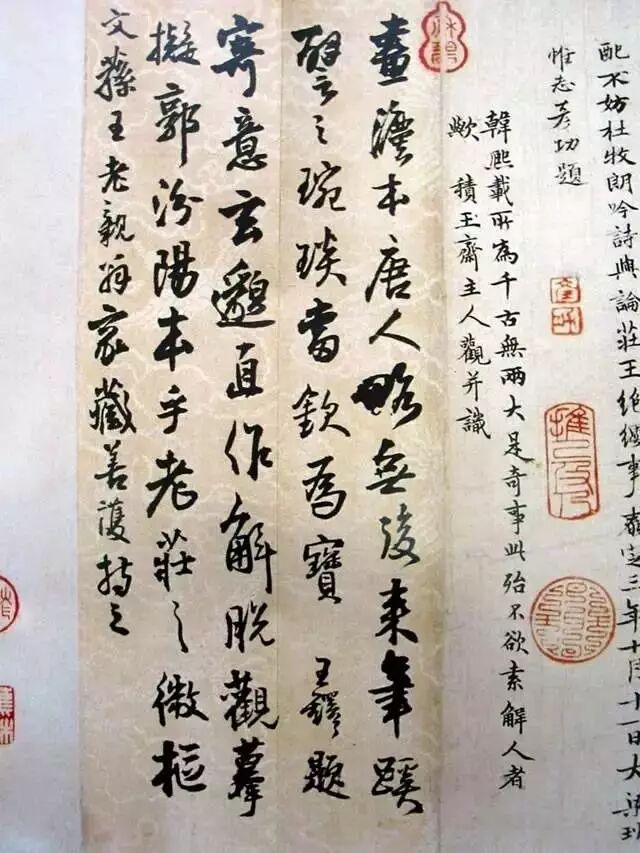 配不妨杜牧朗吟詩興論莊王絕纓事泰定三年十月十一日大梁班
惟志彥功題
韓熙載所為千古無兩大是奇事此殆不欲索解人者
歟 積玉齋主人觀并識
畫灋本唐人略無後來筆蹊
譬之琬琰當欽為寶 王鐸題
寄意玄邈直作解脫觀摹
擬郭汾陽本乎老莊之微樞
文蓀王老親翁家藏善護持之